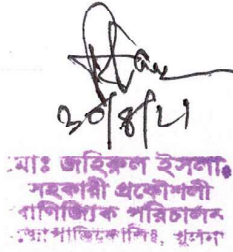 ৩০/৪/২১
মোঃ জহিরুল ইসলাম
সহকারী প্রকৌশলী
বাণিজ্যিক পরিচালন
খুলনা